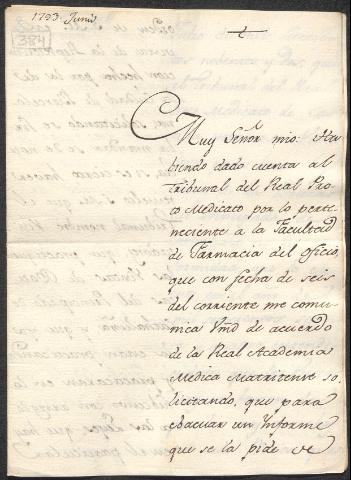 1793. Junio
384
Muy Señor mio: Ha-
biendo dado cuenta al
Tribunal del Real Pro
to Medicato por lo perte-
neciente a la Facultad
de Farmacia del oficio,
que con fecha de seis
del corriente me comu-
nica Vmd de acuerdo
de la Real Academia
Medica Matritense so-
licitando, que para
ebacuar un Informe
que se la pide de